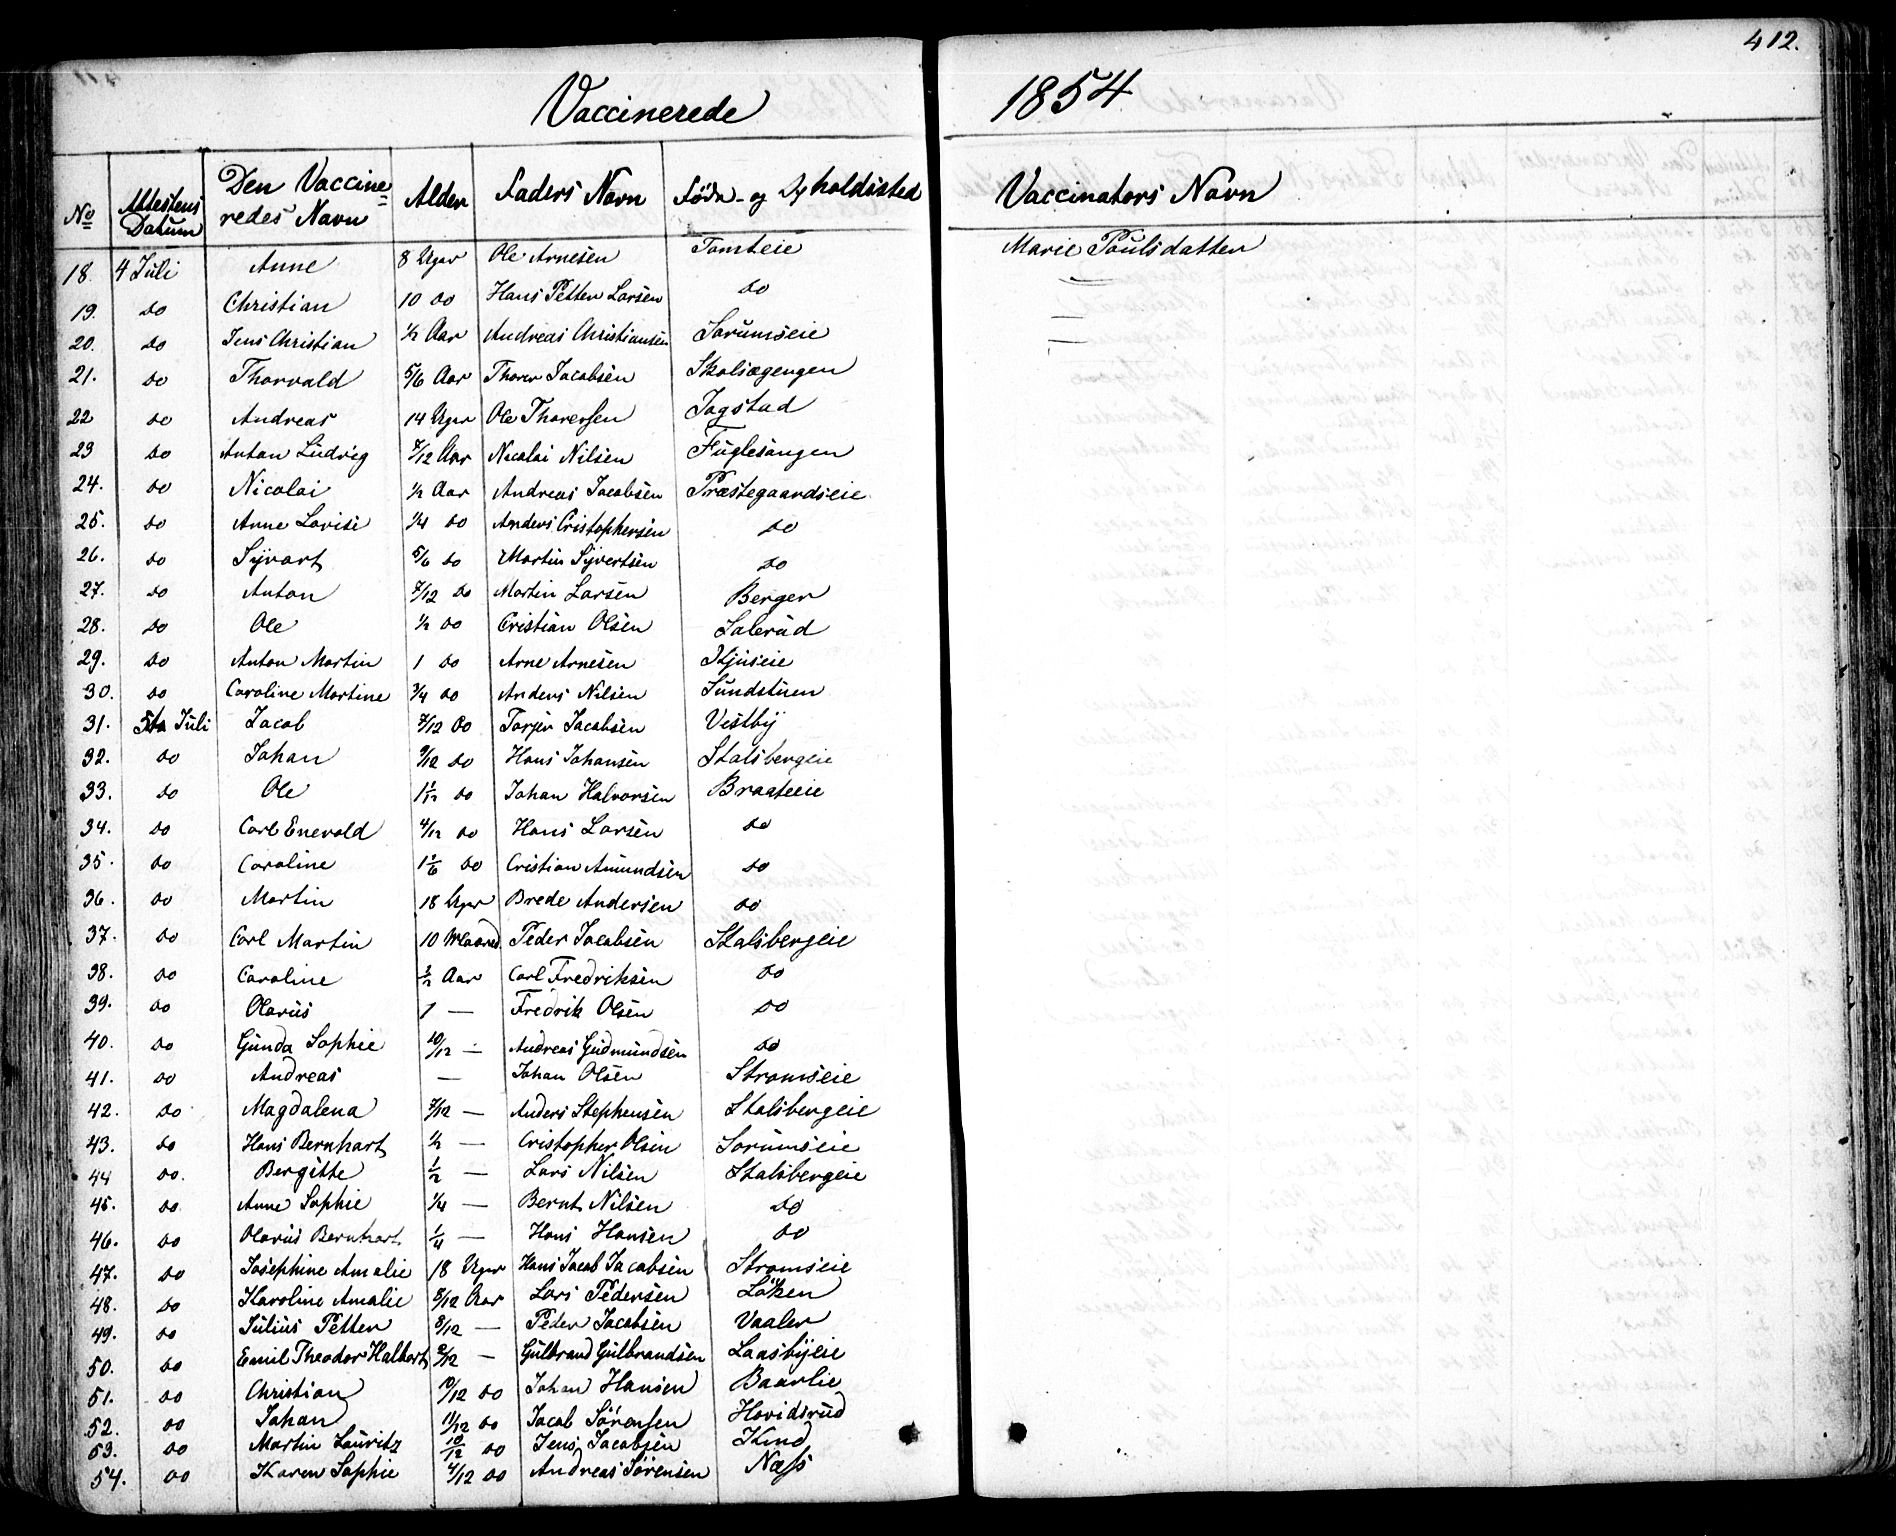 412.
Vaccinerede 1854
No Attestens Datum Den Vaccineredes Navn Alder Faders Navn Föde- og Opholdssted Vaccinators Navn
18. 4 Juli Anne 8 Uger Ole Arnesen Tomteie Marie Poulsdatter
19. do Christian 10 do Hans Petter Larsen do —
20. do Jens Christian 1/2 Aar Andreas Christiansen Sorumseie —
21. do Thorvald 5/6 Aar Thorer Jacobsen Skolsægengen
22 do Andreas 14 Uger Ole Thoresen Jagstad
23 do Anton Ludvig 7/12 Aar Nicolai Nilsen Fuglesangen
24. do Nicolai 1/2 Aar Andreas Jacobsen Præstegaardseie
25. do Anne Lovise 1/4 do Anders Cristophersen do
26. do Syvart 5/6 do Martin Syvertsen do
27. do Anton 7/12 do Martin Larsen Berger
28. do Ole 1/2 do Cristian Olsen Salerud
29. do Anton Martin 1 do Arne Arnesen Kjuseie
30. do Caroline Martine 3/4 do Anders Nilsen Sundstuen
31. 5te Juli Jacob 7/12 do Torjer Jacobsen Vestby
32. do Johan 9/12 do Hans Johansen Stalsbergeie
33. do Ole 1 1/12 do Johan Halvorsen Braateeie
34. do Carl Enevold 4/12 do Hans Larsen do
35. do Caroline 1 1/6 do Cristian Amundsen do
36. do Martin 18 Uger Brede Andersen do
37. do Carl Martin 10 Maaned Peder Jacobsen Stalsbergeie
38. do Caroline 1/2 Aar Carl Fredriksen do
39. do Olavus 1 — Fredrik Olsen do
40. do Gunda Sophie 10/12 — Andreas Gudmundsen do
41. do Andreas — Johan Olsen Stromseie
42. do Magdalena 7/12 — Anders Stephensen Stalsbergeie
43. do Hans Bernhart 1/2 — Cristopher Olsen Sorumseie
44 do. Bergitte 1/2 — Lars Nilsen Stalsbergeie
45. do Anne Sophie 1/4 — Bernt Nilsen do
46. do Olavus Bernhart 1/4 — Hans Hansen do
47. do Josephine Amalie 18 Uger Hans Jacob Jacobsen Stromseie
48. do Karoline Amalie 8/12 Aar Lars Pedersen Löken
49. do Julius Petter 8/12 — Peder Jacobsen Vaaler
50. do Emil Theodor Halbert 2/12 — Gulbrand Gulbrandsen Laasbyeie
51. do Christian 10/12 do Johan Hansen Baarlie
52. do Johan 11/12 do Jacob Sörensen Hovidsrud
53. do Martin Lauritz 10/12 do Jens Jacobsen Kind
54. do Karen Sophie 4/12 do Andreas Sörensen Næss